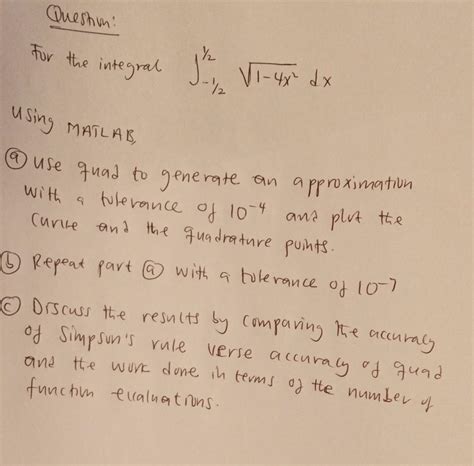 Question:
For the integral ∫_{-1/2}^{1/2} √(1-4x²) dx
using MATLAB,
ⓐ use quad to generate an approximation
with a tolerance of 10⁻⁴ and plot the
curve and the quadrature points.
ⓑ Repeat part ⓐ with a tolerance of 10⁻⁷
ⓒ Discuss the results by comparing the accuracy
of Simpson's rule verse accuracy of quad
and the work done in terms of the number of
function evaluations.